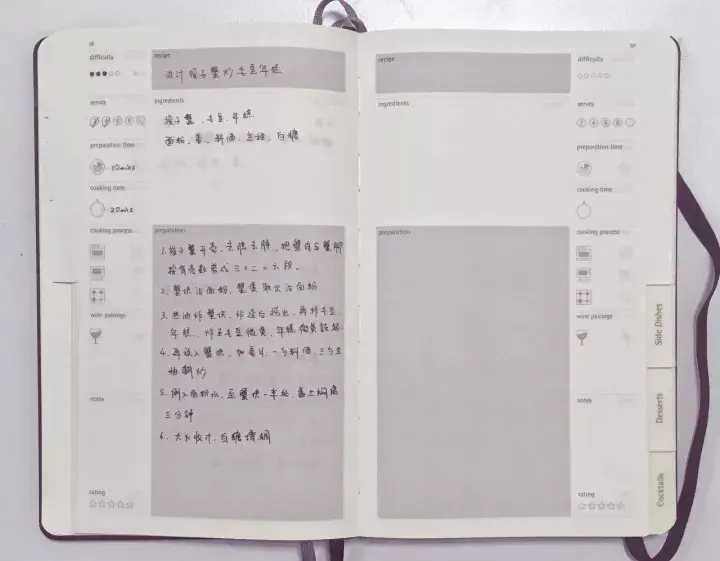 difficulty
recipe
浓汁梭子蟹炒毛豆年糕
serves
ingredients
梭子蟹、毛豆、年糕
面粉、姜、料酒、生抽、白糖
preparation time
10mins
cooking time
20mins
cooking process
preparation
1. 梭子蟹开壳、去腮去肺,把蟹身与蟹脚
剪成三×二=六段。
2. 蟹块沾面粉,蟹黄取出沾面粉
3. 热油炸蟹块,炸后捞出,再炸毛豆、
年糕,炸至毛豆微黄,年糕微黄鼓起
4. 再放入蟹块,加姜片,一勺料酒,三勺生
抽翻炒
5. 倒入面粉水,至蟹块一半处,盖上焖
三分钟
6. 大火收汁,白糖调
wine pairings
notes
rating
recipe
difficulty
ingredients
serves
2 4 6 8
preparation time
cooking time
preparation
cooking process
wine pairings
notes
rating
Side Dishes
Desserts
Cocktails